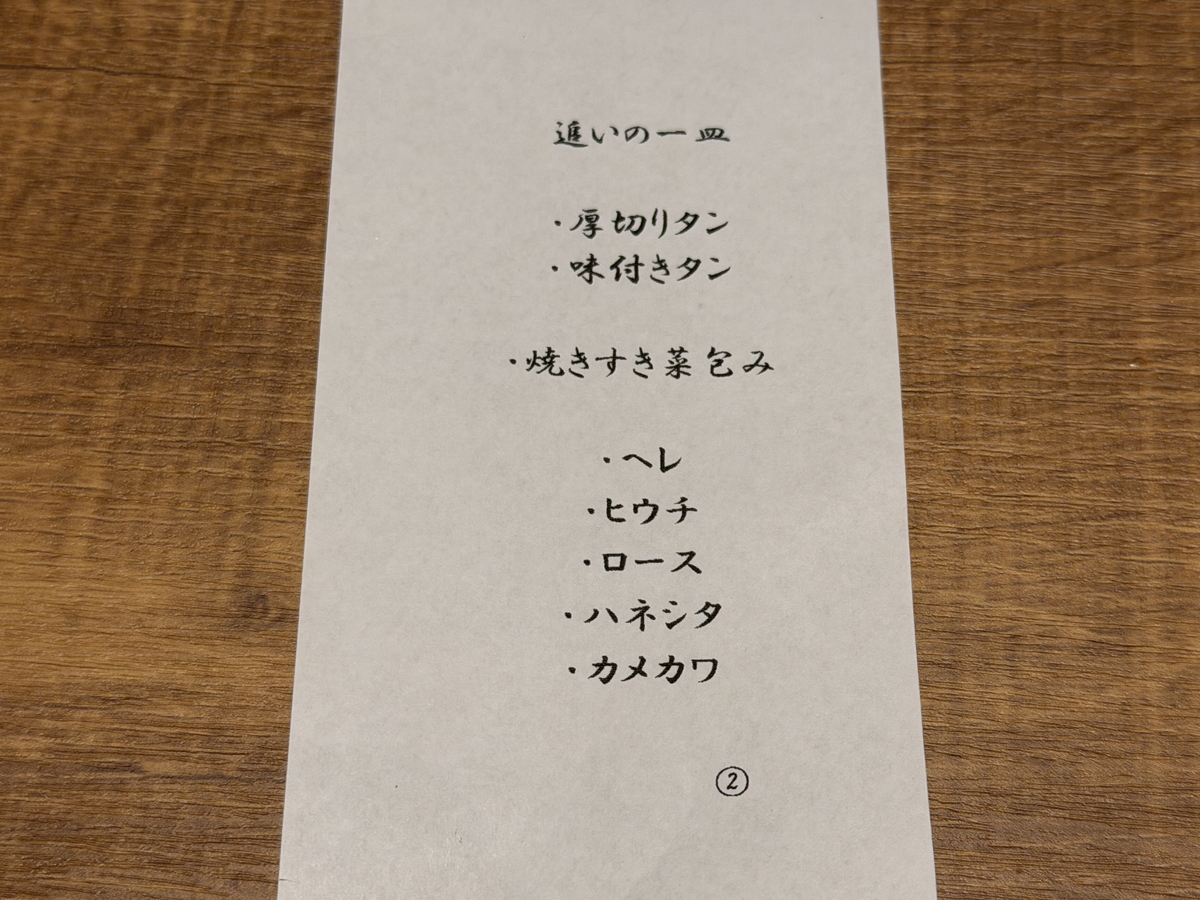 追いの一皿
・厚切りタン
・味付きタン
・焼きすき菜包み
・ヘレ
・ヒウチ
・ロース
・ハネシタ
・カメカワ
②